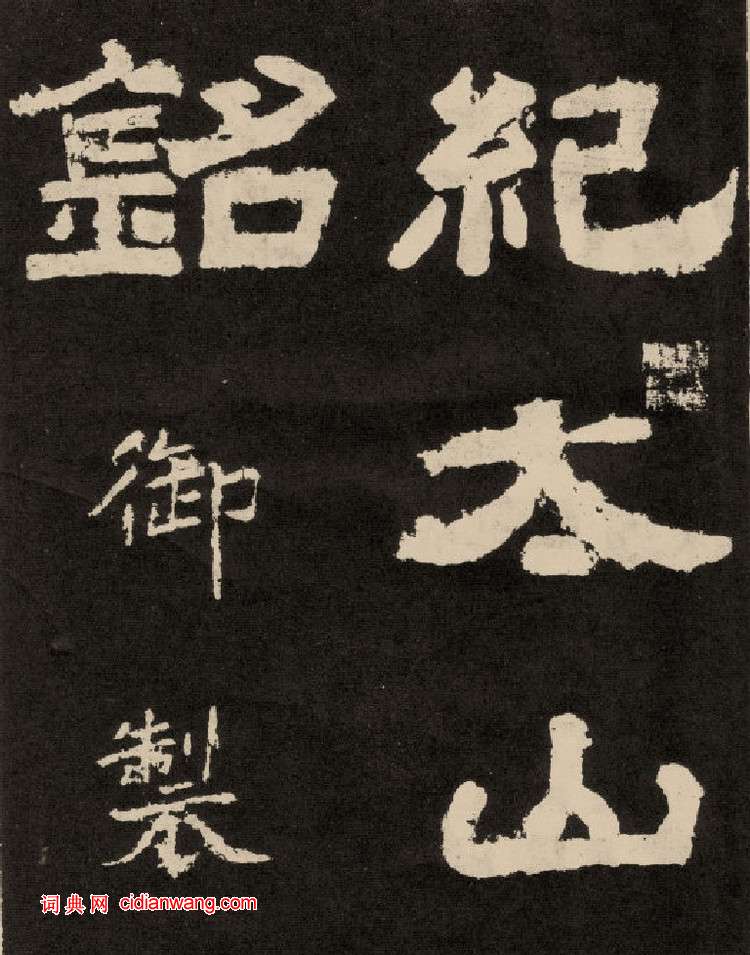 紀太山
銘御製
词典网 cidianwang.com